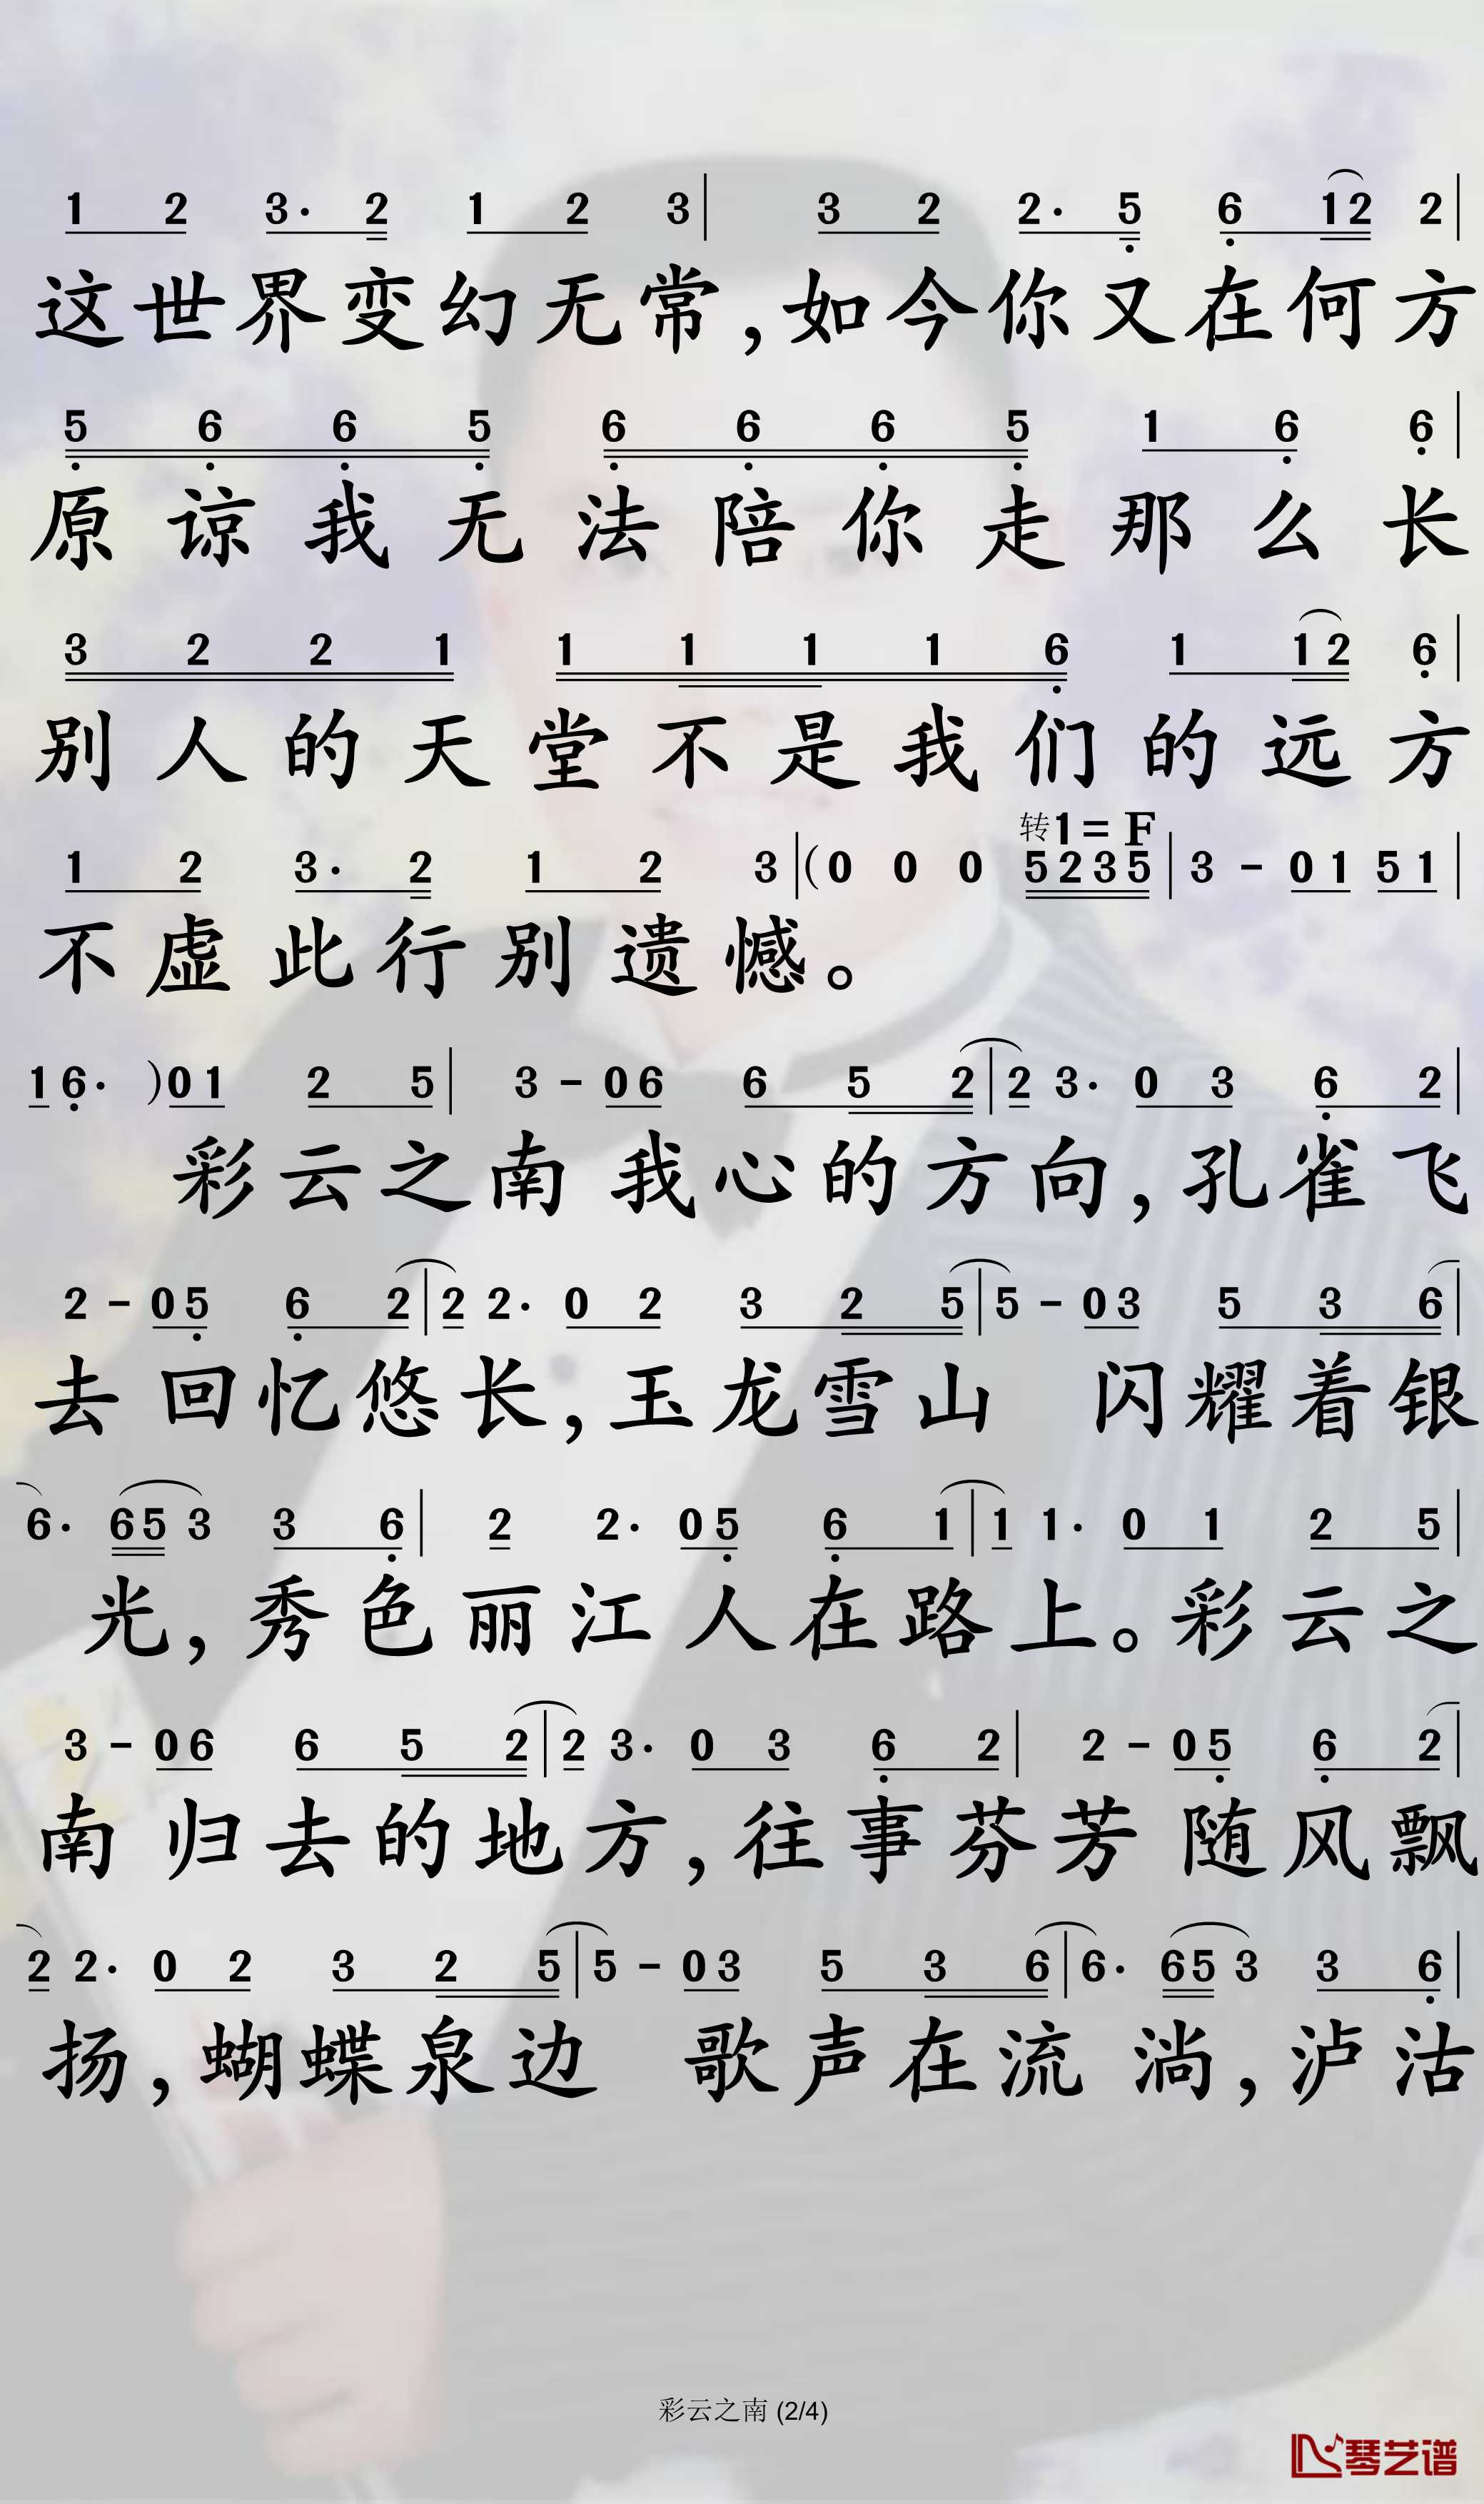 1 2 3· 2 1 2 3 | 3 2 2· 5 6 12 2 |
这世界变幻无常,如今你又在何方
5 6 6 5 6 6 6 5 1 6 6 |
原谅我无法陪你走那么长
3 2 2 1 1 1 1 1 6 1 12 6 |
别人的天堂不是我们的远方
转1= F
1 2 3· 2 1 2 3 | (0 0 0 5235 | 3 - 01 51 |
不虚此行别遗憾。
16· )01 2 5 | 3 - 06 6 5 2 | 2 3· 0 3 6 2 |
彩云之南 我心的方向,孔雀飞
2 - 05 6 2 | 2 2· 0 2 3 2 5 | 5 - 03 5 3 6 |
去 回忆悠长,玉龙雪山 闪耀着银
6· 65 3 3 6 | 2 2· 05 6 1 | 1 1· 0 1 2 5 |
光,秀色丽江人在路上。彩云之
3 - 06 6 5 2 | 2 3· 0 3 6 2 | 2 - 05 6 2 |
南 归去的地方,往事芬芳 随风飘
2 2· 0 2 3 2 5 | 5 - 03 5 3 6 | 6· 65 3 3 6 |
扬,蝴蝶泉边 歌声在流 淌,泸沽
彩云之南 (2/4)
琴艺谱